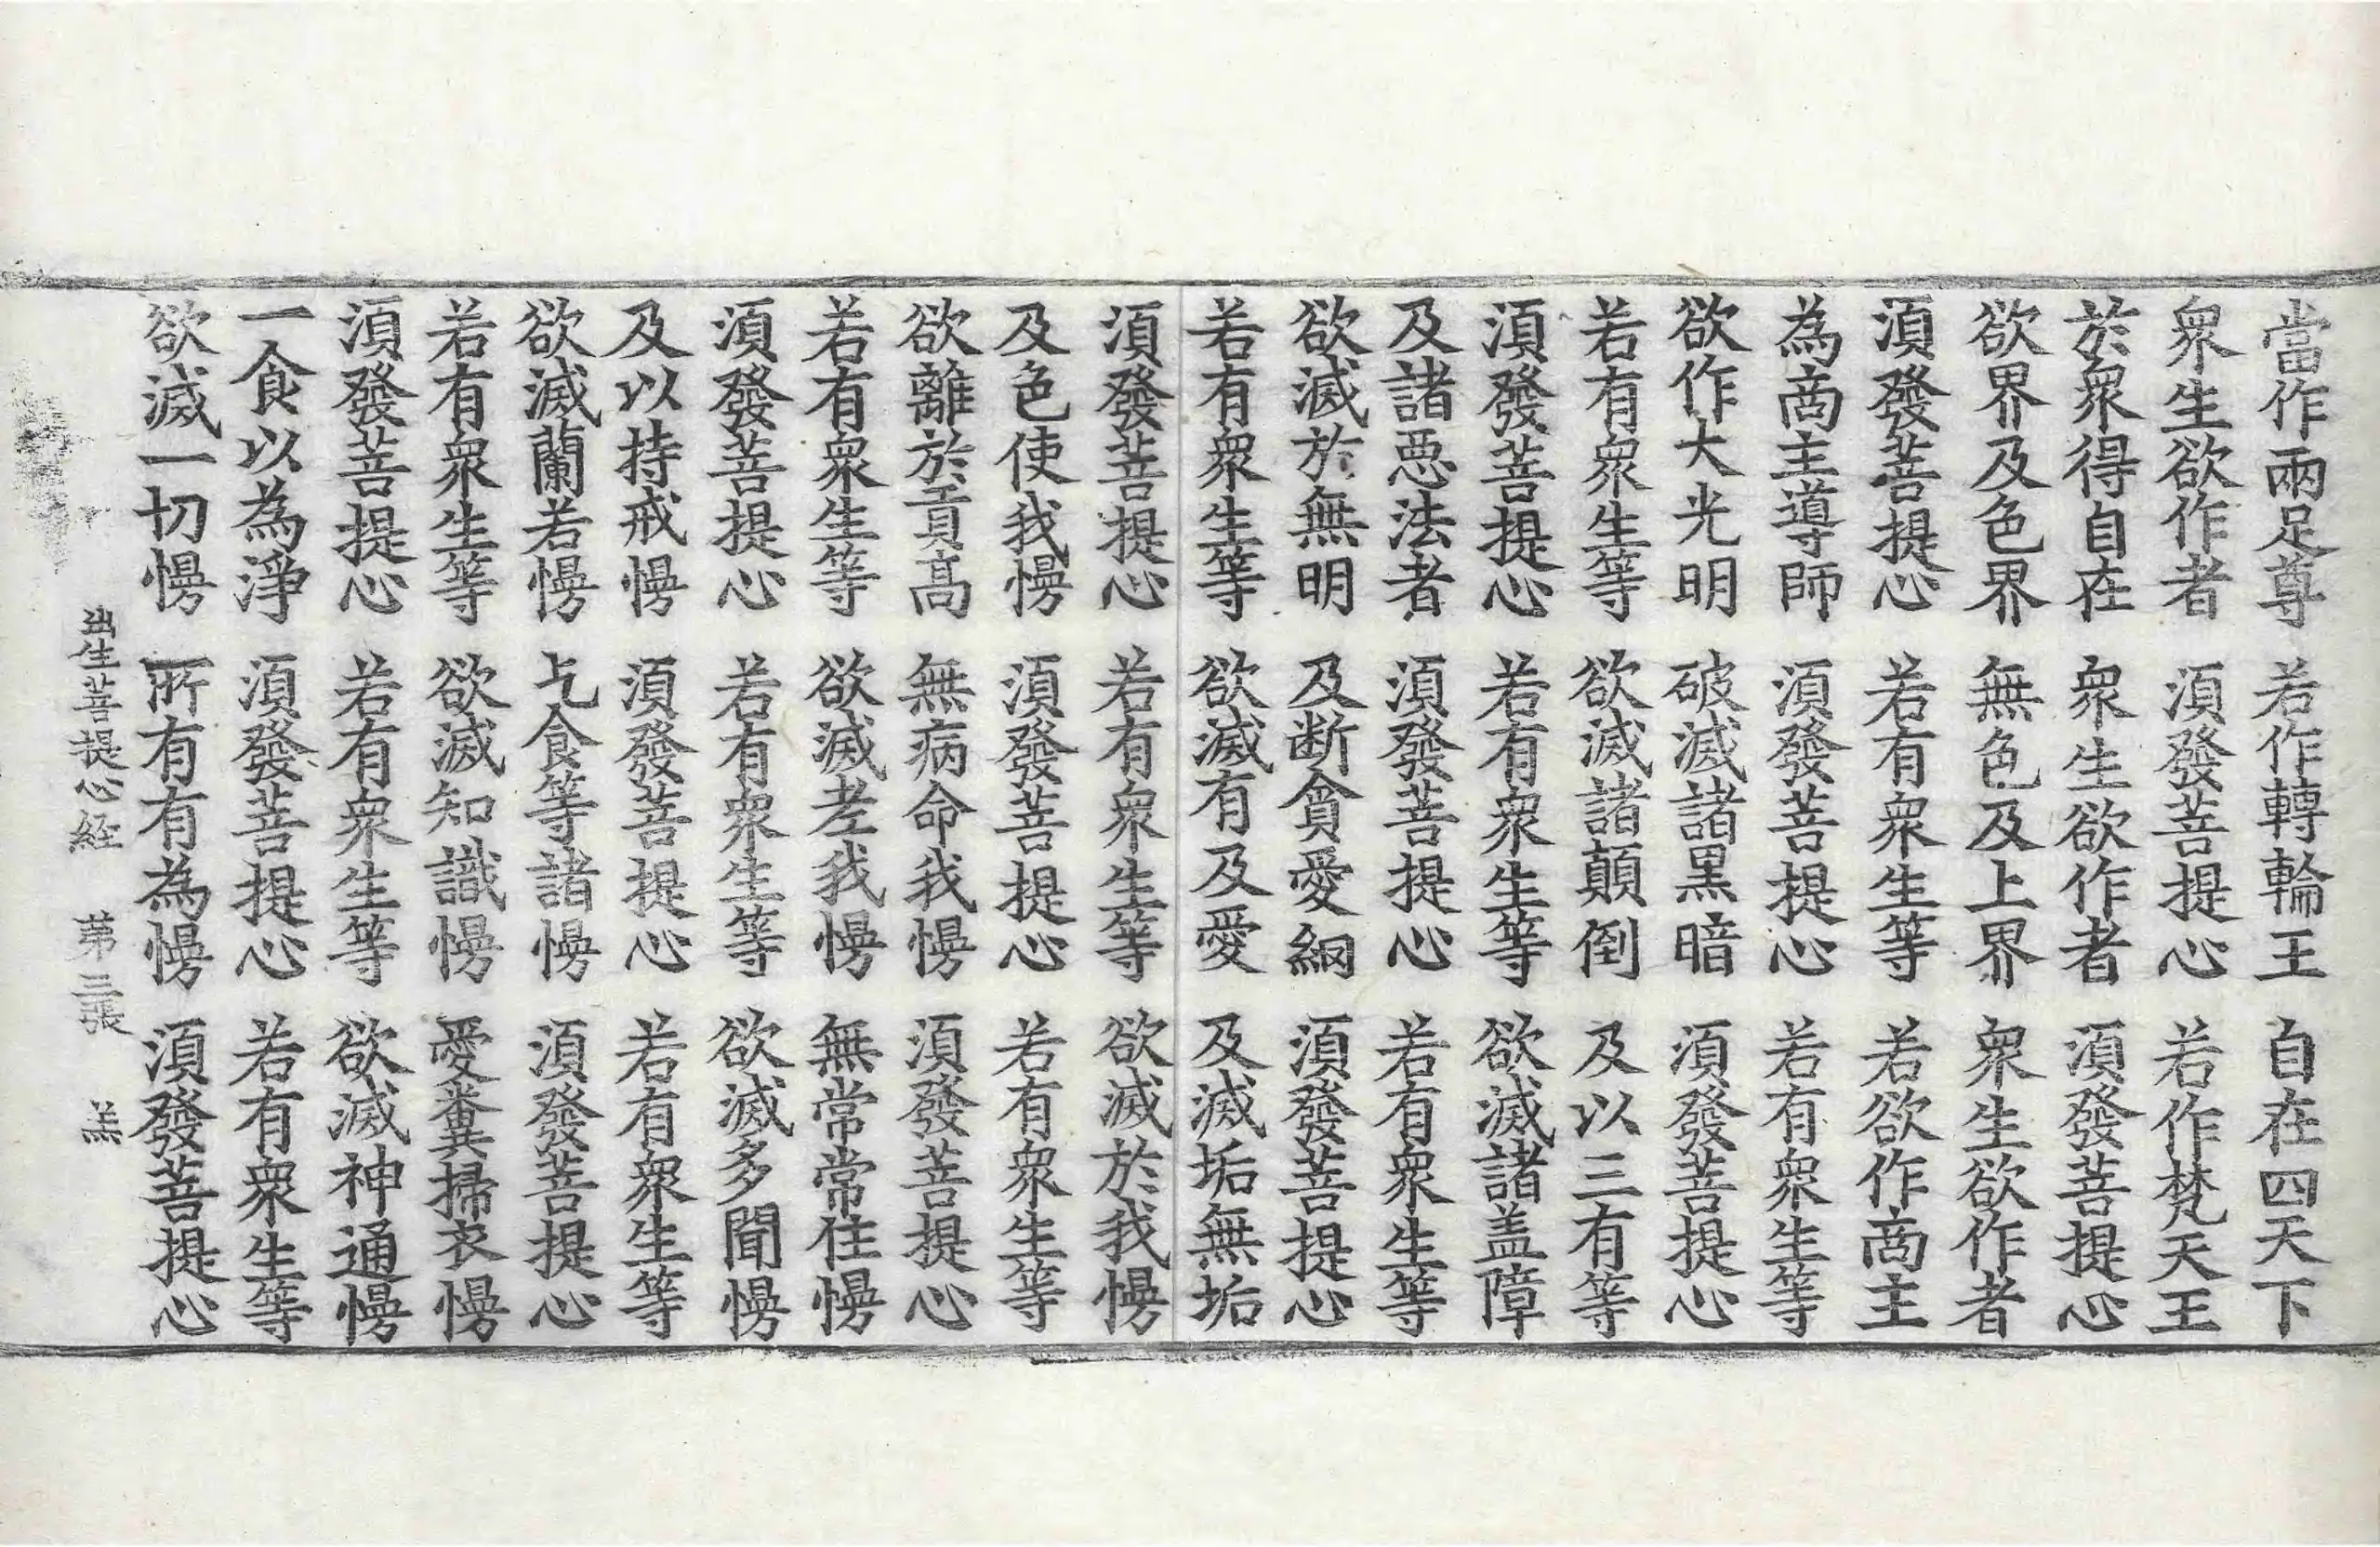 當作兩足尊 若作轉輪王 自在四天下
衆生欲作者 湏發菩提心 若作梵天王
於衆得自在 衆生欲作者 湏發菩提心
欲界及色界 無色及上界 衆生欲作者
湏發菩提心 若有衆生等 若欲作商主
為商主導師 湏發菩提心 若有衆生等
欲作大光明 破滅諸黒暗 湏發菩提心
若有衆生等 欲滅諸顛倒 及以三有等
湏發菩提心 若有衆生等 欲滅諸盖障
及諸悪法者 湏發菩提心 若有衆生等
欲滅於無明 及断貪愛網 湏發菩提心
若有衆生等 欲滅有及愛 及滅垢無垢
湏發菩提心 若有衆生等 欲滅於我慢
及色使我慢 湏發菩提心 若有衆生等
欲離於貢高 無病命我慢 湏發菩提心
若有衆生等 欲滅老我慢 無常常住慢
湏發菩提心 若有衆生等 欲滅多聞慢
及以持戒慢 湏發菩提心 若有衆生等
欲滅蘭若慢 乞食等諸慢 湏發菩提心
若有衆生等 欲滅知識慢 愛糞掃衣慢
湏發菩提心 若有衆生等 欲滅神通慢
一食以為淨 湏發菩提心 若有衆生等
欲滅一切慢 所有有為慢 湏發菩提心
出生菩提心経 第三張 羔